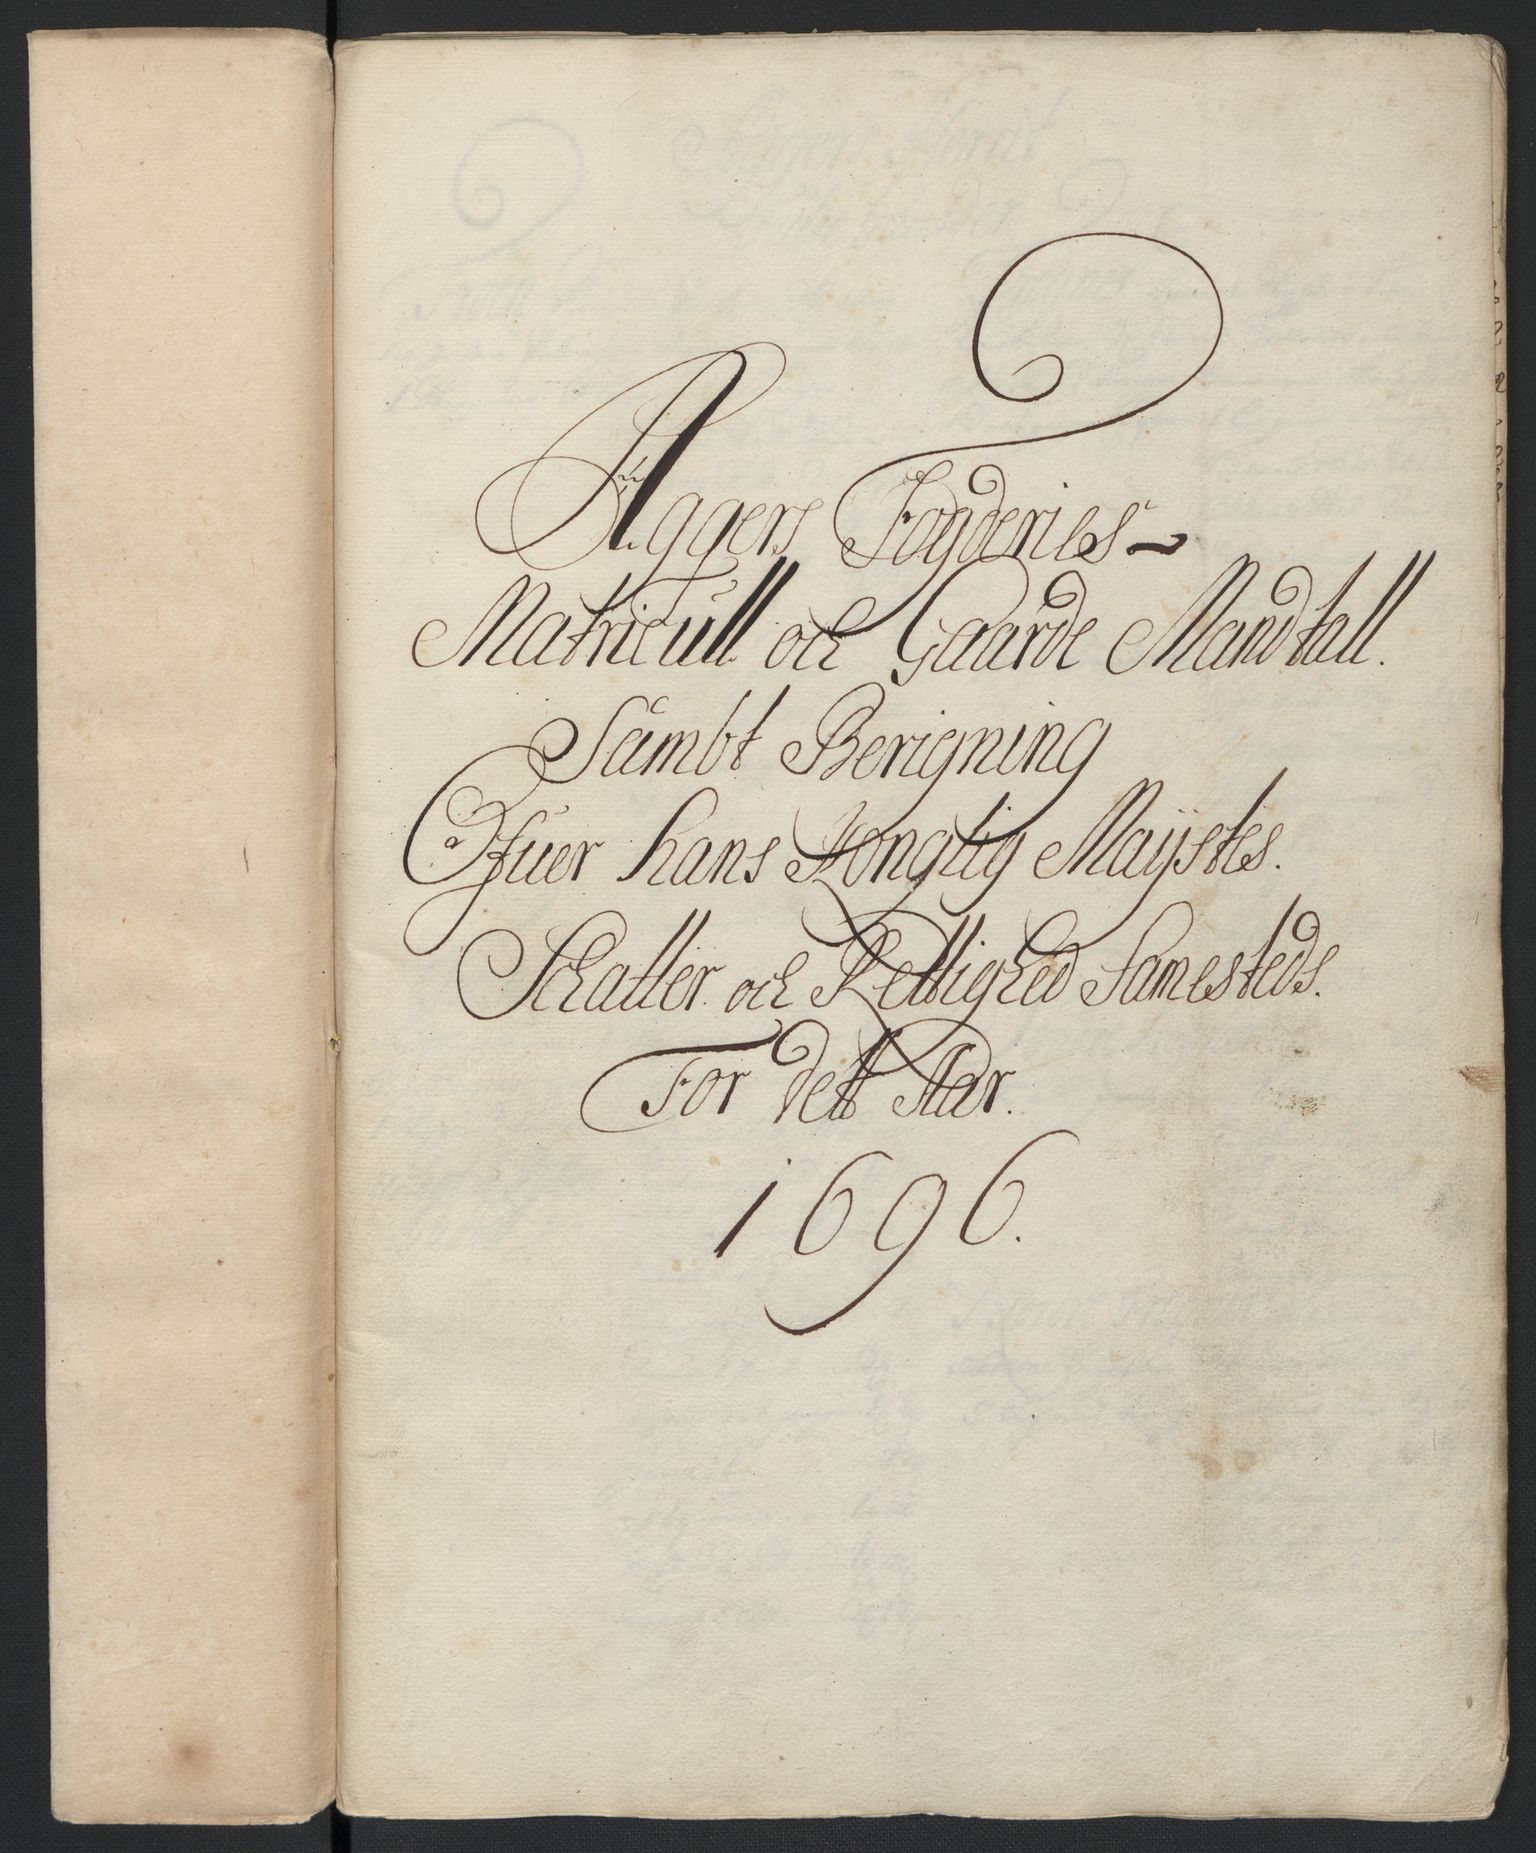 Aggers Fogderies
Matricull och Gaarde Mandtall.
Sambt Berigning
Ofuer hans Konglig Maystes.
Schatter och Rettighed Samesteds.
For dett Aar.
1696.